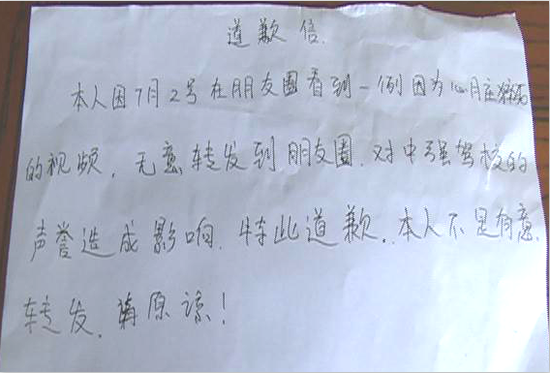 道歉信.
本人因7月2号在朋友圈看到一例因为心月庄
的视频，无意转发到朋友圈.对中强驾校的
声誉造成影响.特此道歉.本人不是有意
转发.请原谅！